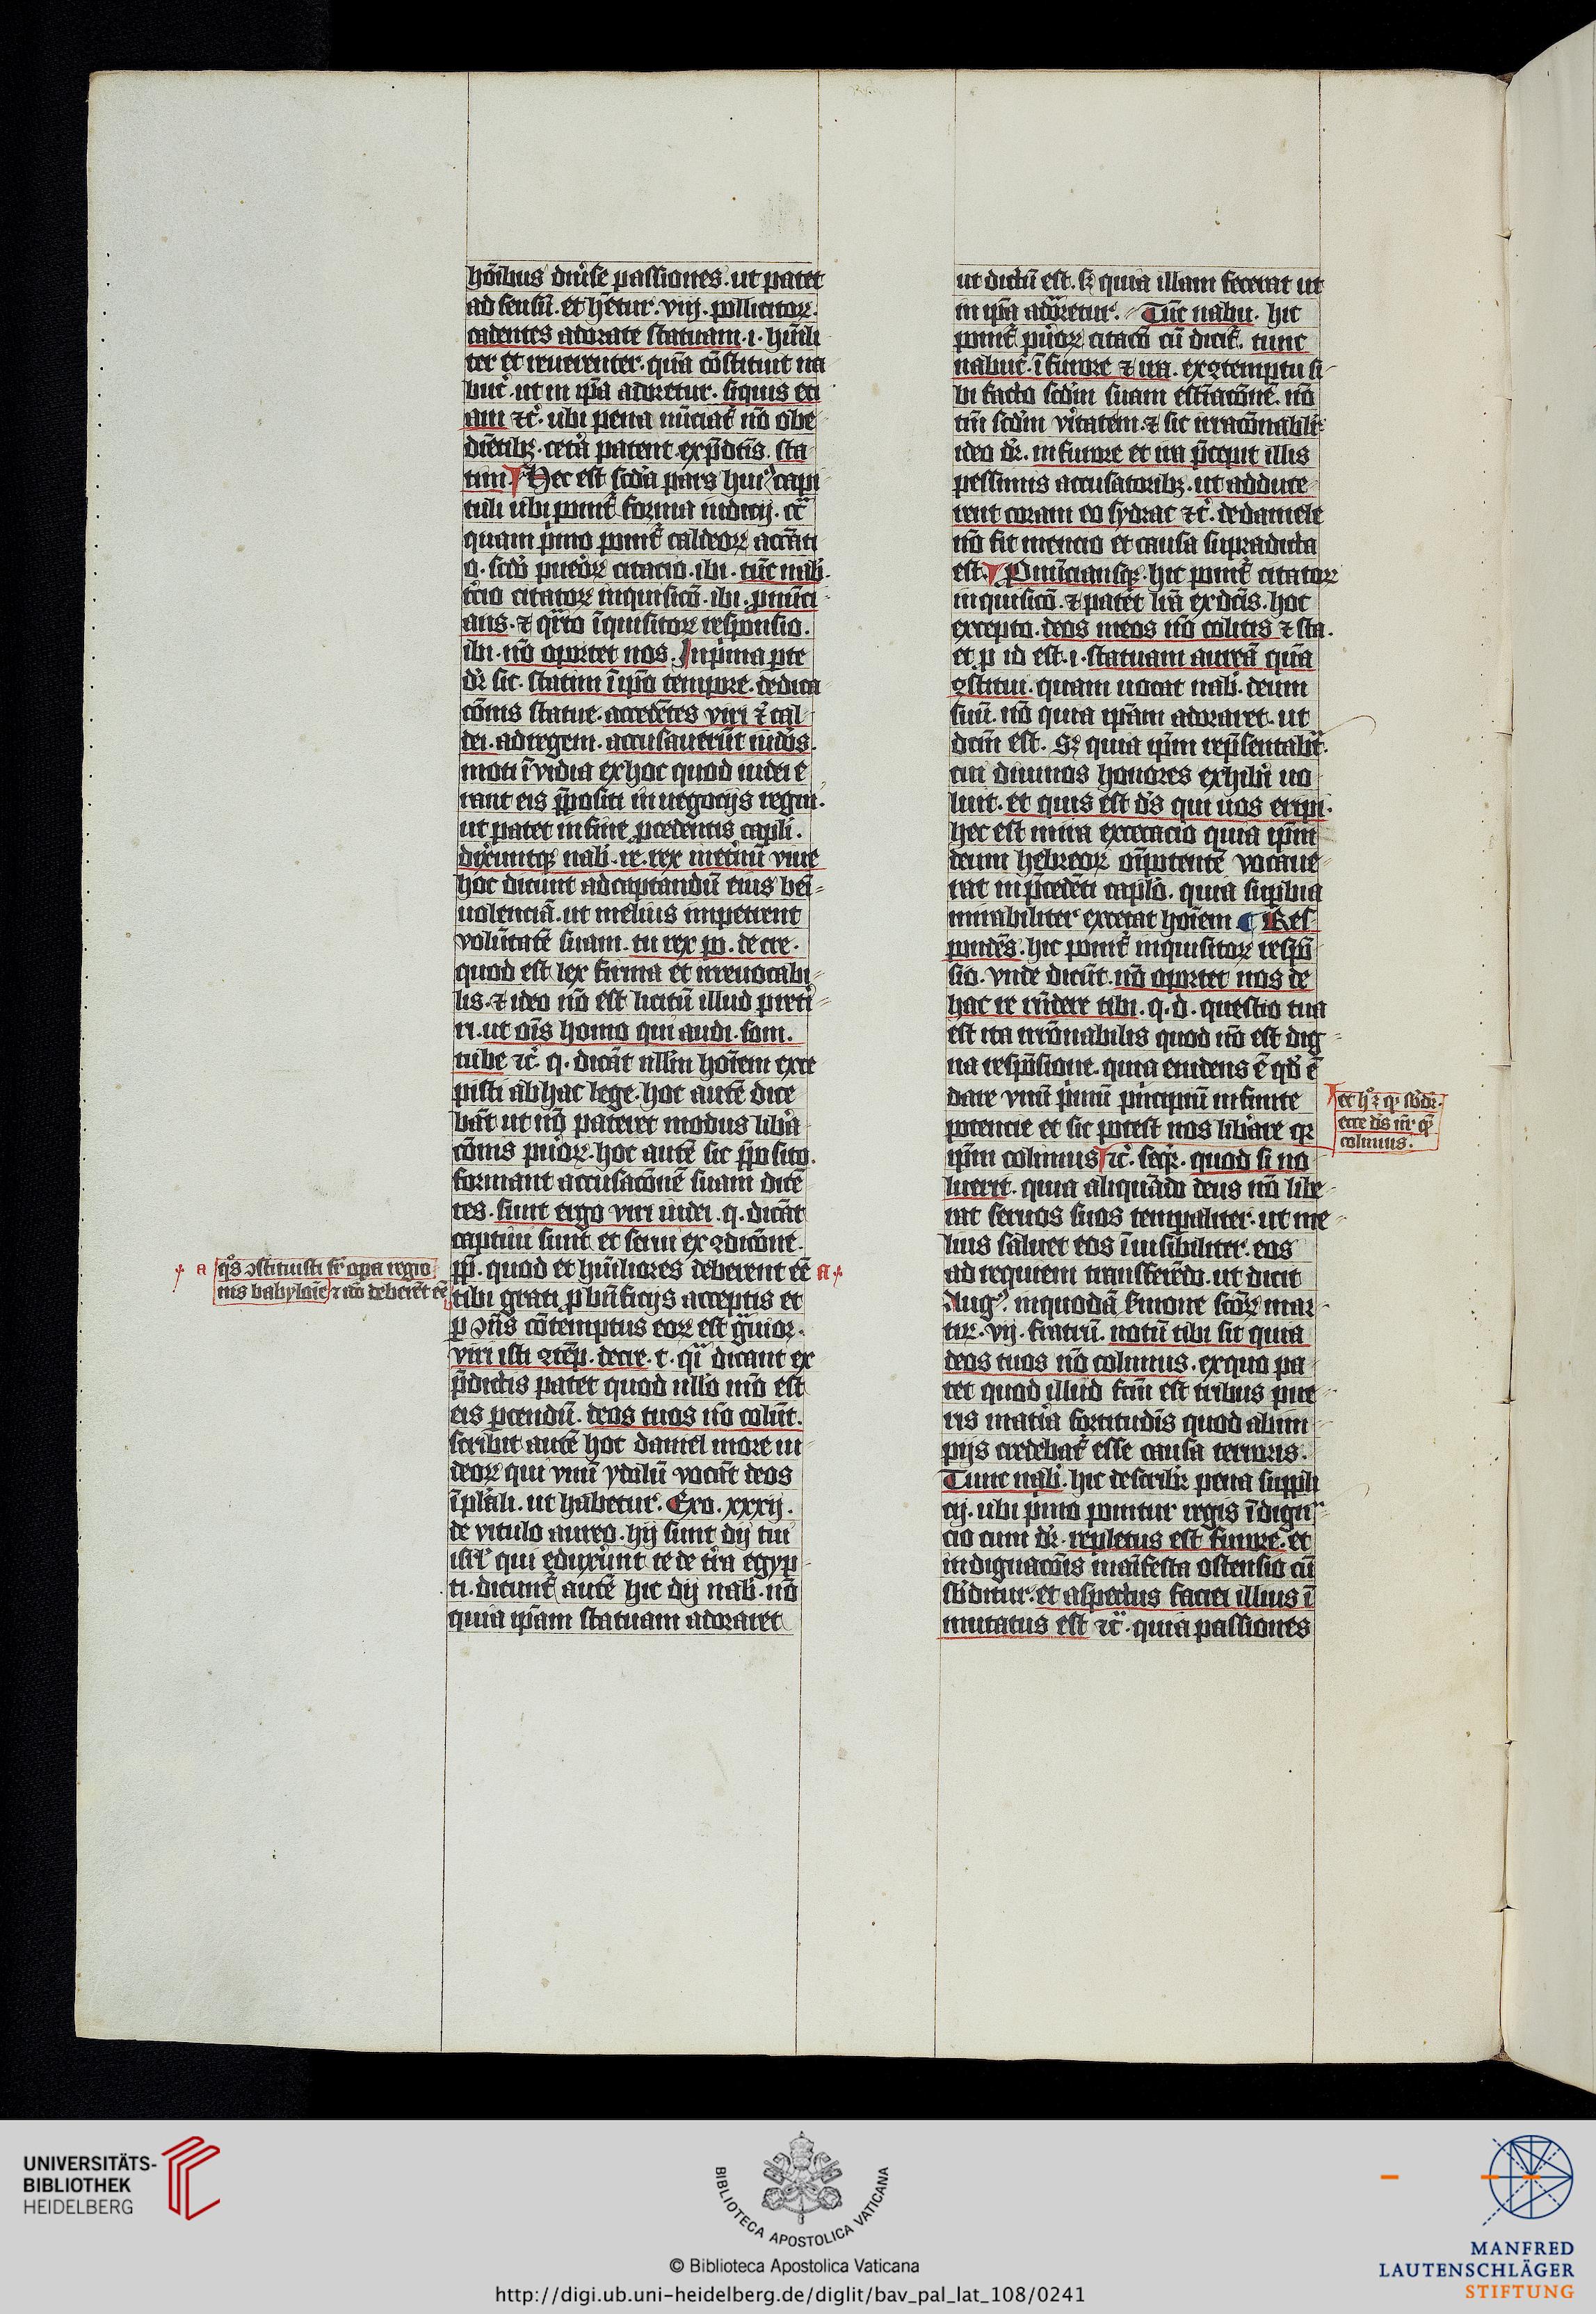 hōibus dn̄ise passiones. ut patet
ad sensū. et hētur. viij. pollicitoꝝ.
cadentes adorate statuam .i. hūili
ter et reuerenter. quā cōstituit na
buc. ut in ip̄a adoretur. siquis eti
am ⁊c̄. ubi pena nūciat᷑ nō obe
diētibꝫ. cetͣa patent ex p̄dc̄is. sta
tim Hec est scd̄a pars huiꝰ capi
tuli ubi ponit᷑ forma iudicij. cͥ
quam pͥmo ponit᷑ caldeoꝝ accūati
o. scd̄o pueroꝝ citacio. ibi. tūc nab.
tͨcio citatoꝝ inquisicō. ibi. pnūci
ans. ⁊ qͣrto īquisitoꝝ responsio.
ibi. nō oportet nos. In pͥma pte
dr̄ sic. statim ī ip̄o tempore. dedica
cōnis statue. accedētes viri ⁊ cal
dei. ad regem. accusauerūt iudos.
moti īuidia ex hoc quod iudei e
rant eis p̄positi in negocijs regni.
ut patet in fine p̄cedentis capli.
dixeruntqꝫ nab. re. rex inet̄nū viue
hoc dicunt ad captandū eius bn̄i
uolenciā. ut melius impetrent
volūtatē suam. tu rex po. decre.
quod est lex firma et irreuocabi
lis. ⁊ ideo nō est licitū illud preti
ri. ut oīs homo qui audi. som.
tube ⁊c̄. q. dicāt nllm̄ hoīem exce
pisti ab hac lege. hoc autē dice
bāt ut nō pateret modus libͣa
cōnis pueroꝝ. hoc autē sic p̄posito.
formant accusacōnē suam dicē
tes. sunt ergo viri iudei. q. dicāt
captiui sunt et serui ex ɔdicōne.
qͦs ɔstituisti sr̄ opa regio
nis babyloīe ⁊ nō deberēt eē
pp̄. quod et hūiliores deberent eē a
tibi grati p bn̄ficijs acceptis et
p ɔn̄s cōtemptus eoꝝ est gͣuior.
viri isti ɔtēp. decre. t. qͥ dicant ex
p̄dictis patet quod nullo mō est
eis pcendū. deos tuos nō colūt.
scribit autē hoc daniel more iu
deoꝝ qui vnū ydolū vocāt deos
ī plͣali. ut habetur. Exo. xxxij.
de vitulo aureo. hij sunt dij tui
isrͭl qui eduxerunt te de tͨra egyp
ti. dicunt᷑ autē hic dij nab. nō
quia ip̄am statuam adoraret
ut dictū est. sꝫ quia illam fecerat ut
in ip̄a adoretur. Tūc nabu. hic
ponit᷑ pueroꝝ citacō cū dicit᷑. tunc
nabuc. ī furore ⁊ ira. ex ɔtemptu si
bi facto scd̄m suam estīacōnē. nō
tn̄ scd̄m vͥtatem. ⁊ sic irracōnabilit᷑
ideo dr̄. in furore et ira p̄cepit illis
pessimis accusatoribꝫ. ut adduce
rent coram eo sydrac ⁊c̄. de daniele
nō fit mencio et causa supradicta
est. Pnūciansqꝫ. hic ponit᷑ citatoꝝ
inquisicō. ⁊ patet lr̄a ex dc̄is. hoc
excepto. deos meos nō colitis ⁊ sta.
et p id est .i. statuam aureā quā
ɔstitui. quam uocat nab. deum
suū. nō quia ip̄am adoraret. ut
dc̄m est. Sꝫ quia ip̄m rep̄sentabat᷑.
cui diuinos honores exhibͥi uo
luit. et quis est ds̄ qui uos eripi.
hec est mira excecacio quia ip̄m
deum hebreoꝝ oīpotentē vocaue
rat in p̄cedēti caplo. quia supbia
mirabiliter excecat hoīem Res
pondēs. hic ponit᷑ inquisitoꝝ respō
sio. vnde dicūt. nō oportet nos de
hac re rn̄dere tibi. q. d. questio tua
est ita irrōnabilis quod nō est dig
na respōsione. quia euidens ē qd̄ ē
dare vnū pͥmū pͥncipiū infinite
potencie et sic potest nos libͣare qꝛ
et hͦ ē qd̄ sbd̄r.
ecce ds̄ nr̄ quē
colimus.
ip̄m colimus ⁊c̄. seqͬ. quod si no
luerit. quia aliquādo deus nō libe
rat seruos suos tempaliter. ut me
lius saluet eos īuisibiliter. eos
ad requiem transferēdo. ut dicit
Augꝰ. in quodā sermone scōꝝ mar
tiꝝ. vij. fratrū. notū tibi sit quia
deos tuos nō colimus. ex quo pa
tet quod illud fcm̄ est tribus pue
ris matͥa fortitudīs quod ab im
pijs credebat᷑ esse causa terroris.
Tunc nab. hic describit᷑ pena suppli
cij. ubi pͥmo ponitur regis īdigna
cio cum dr̄. repletus est furore. et
indignacōis māifesta ostensio cū
sbditur. et aspectus faciei illius ī
mutatus est ⁊c̄. quia passiones
UNIVERSITÄTS-
BIBLIOTHEK
HEIDELBERG
BIBLIOTECA APOSTOLICA VATICANA
© Biblioteca Apostolica Vaticana
http://digi.ub.uni-heidelberg.de/diglit/bav_pal_lat_108/0241
MANFRED
LAUTENSCHLÄGER
STIFTUNG